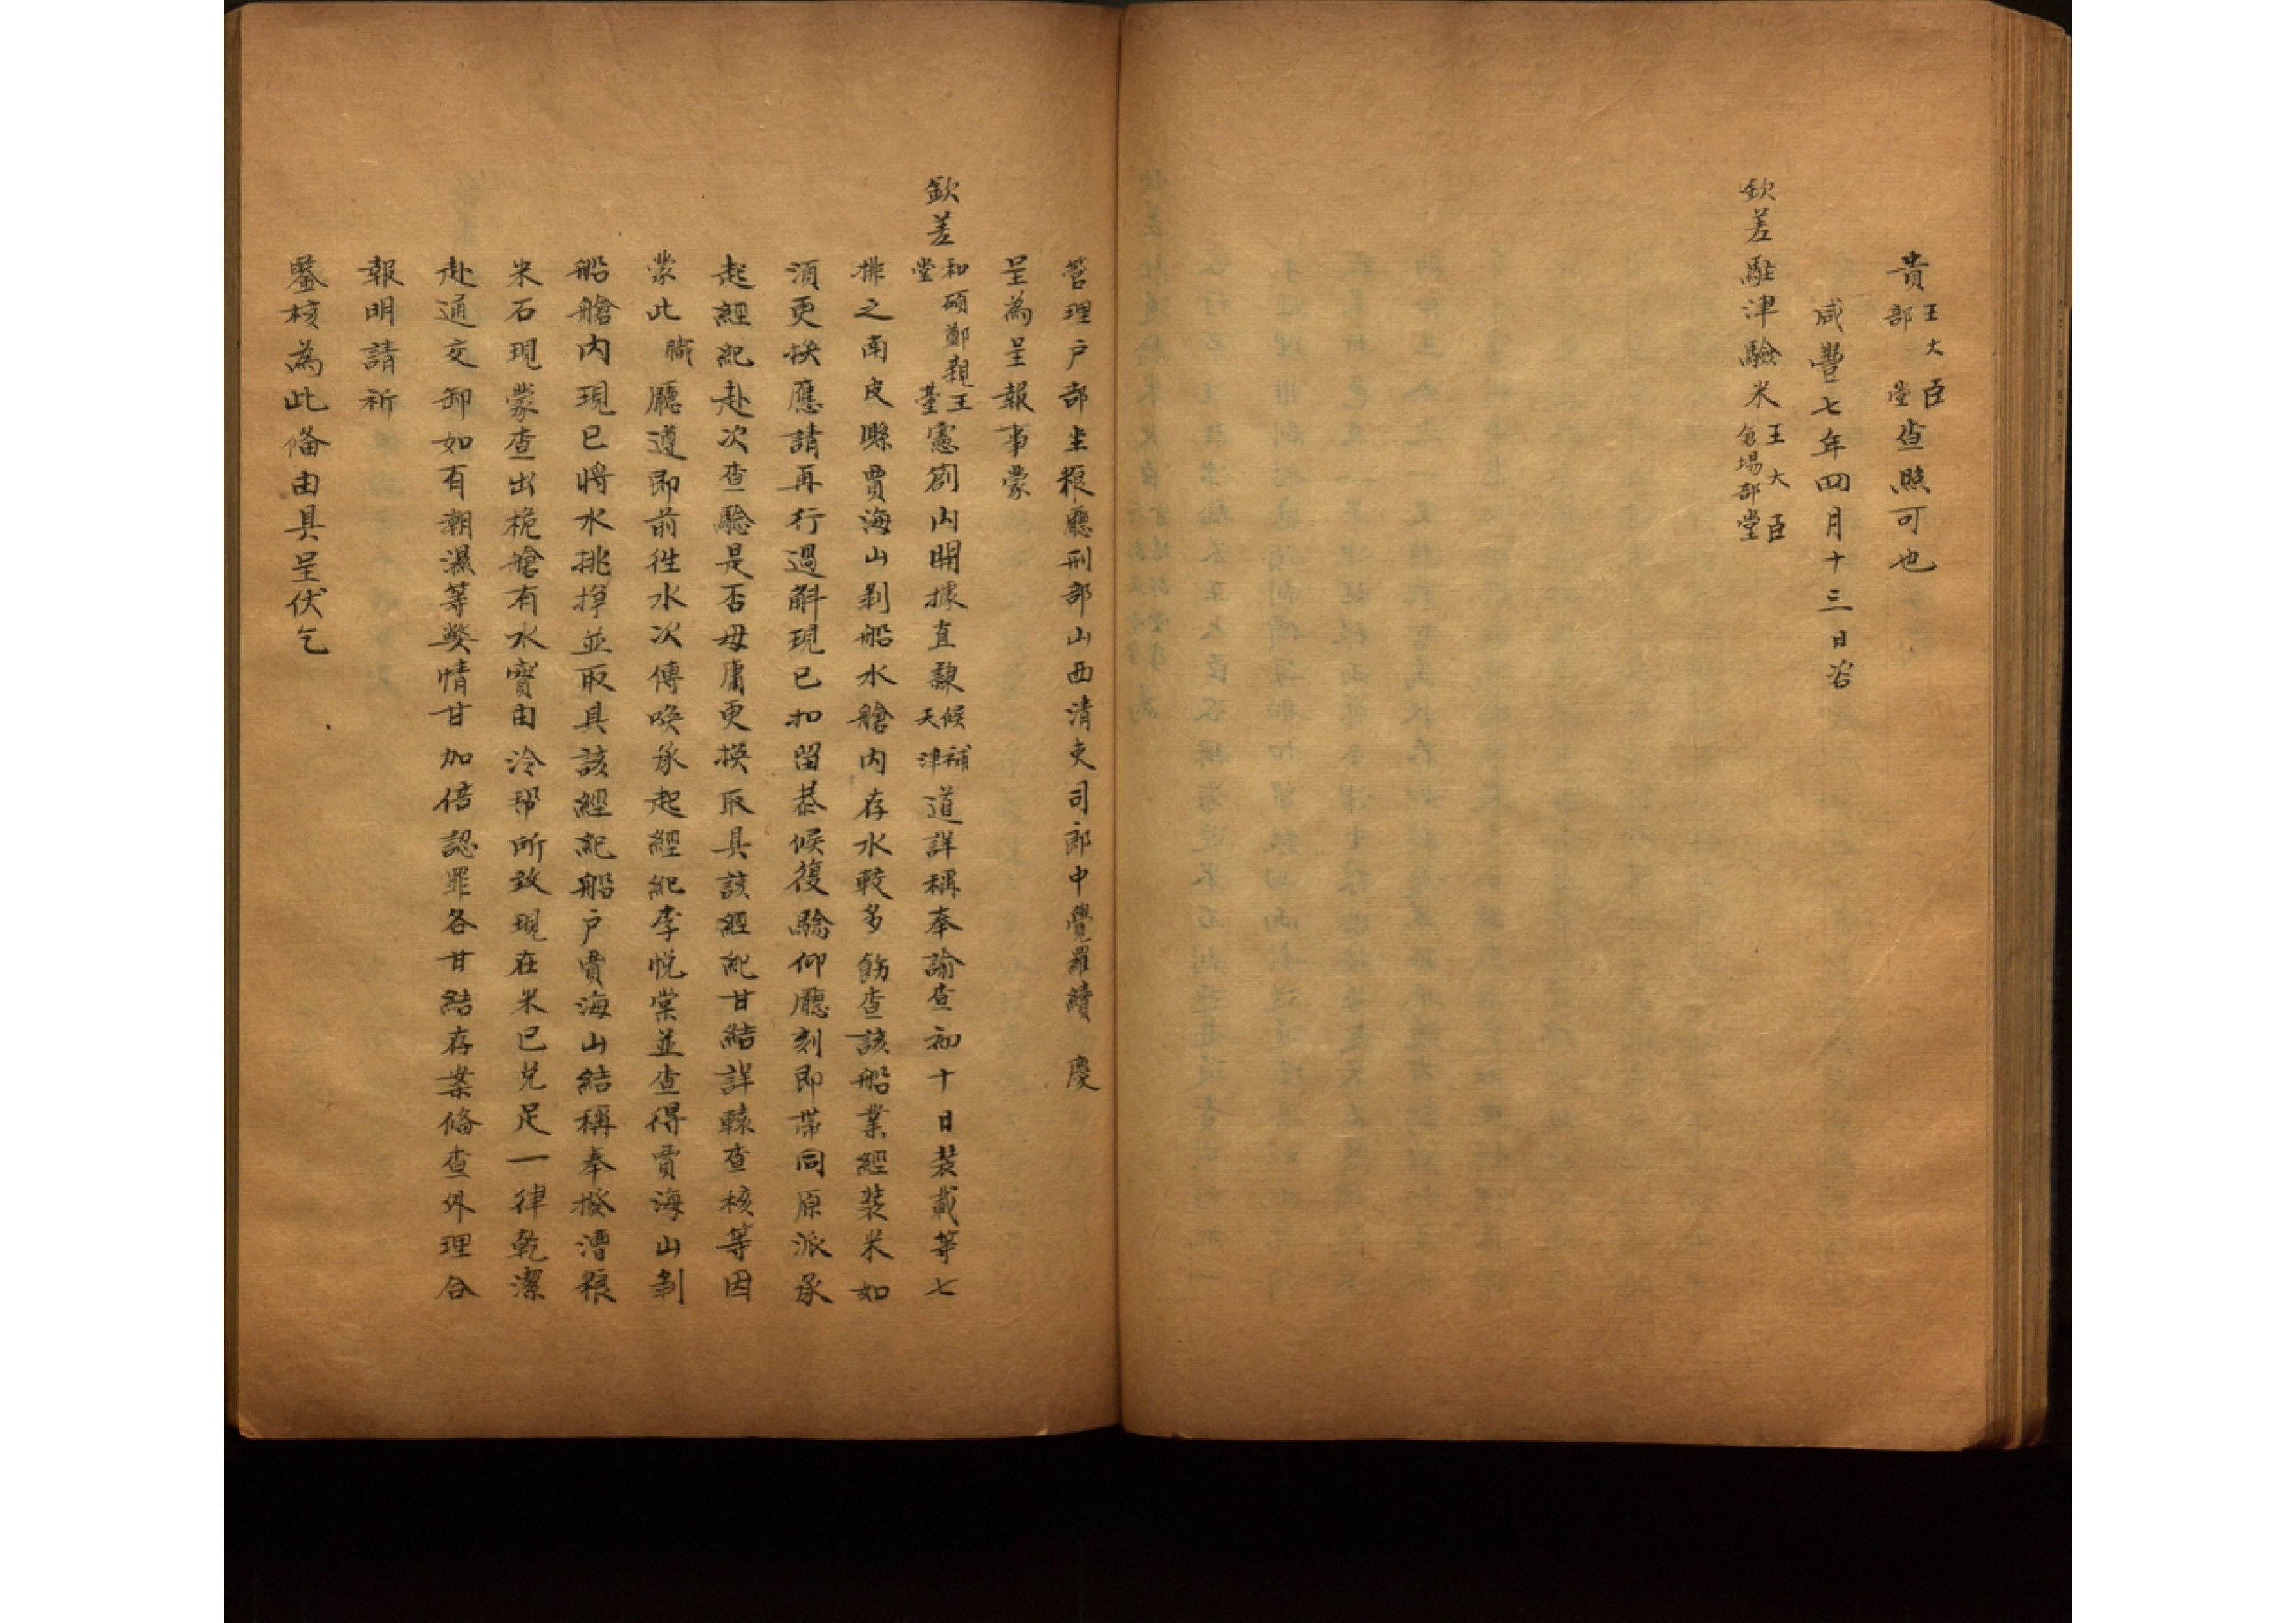 貴王大臣部堂查照可也
咸豐七年四月十三日咨
欽差駐津驗米王大臣倉場部堂
管理户部坐粮廳刑部山西清吏司郎中覺羅續 慶
呈為呈報事蒙
欽差和碩鄭親王堂臺憲劄内開據直隸候補天津道詳稱奉諭查初十日装載第七
排之南皮縣賈海山剥船水艙内存水較多飭查該船業經装米如
須更换應請再行過斛現已扣留恭候復驗仰廳刻即带同原派承
起經紀赴次查驗是否毋庸更换取具該經紀甘結詳轅查核等因
蒙此職廳遵即前徃水次傳唤承起經紀李悦棠並查得賈海山剥
船艙内現已將水挑掙並取具該經紀船户賈海山結稱奉撥漕粮
米石現蒙查出桅艙有水實由泠帮所致現在米已兑足一律乾潔
赴通交卸如有潮濕等獘情甘加倍認罪各甘結存案俻查外理合
報明請祈
鑒核為此俻由具呈伏乞